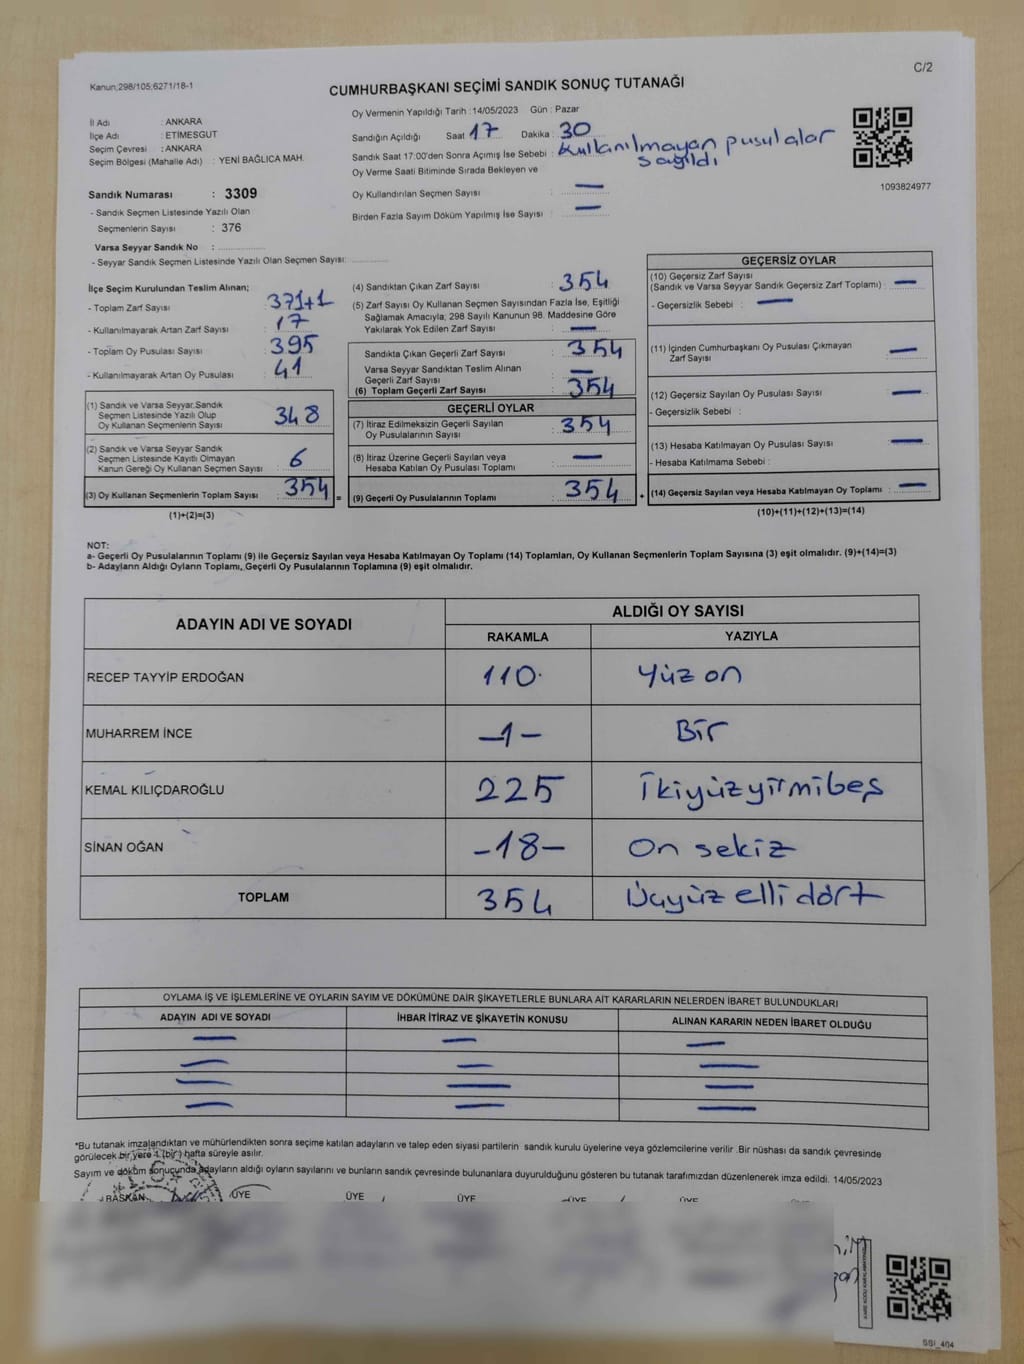 C/2
Kanun;298/105;6271/18-1
CUMHURBAŞKANI SEÇİMİ SANDIK SONUÇ TUTANAĞI
İl Adı : ANKARA
İlçe Adı : ETİMESGUT
Seçim Çevresi : ANKARA
Seçim Bölgesi (Mahalle Adı) : YENİ BAĞLICA MAH.
Sandık Numarası : 3309
- Sandık Seçmen Listesinde Yazılı Olan
Seçmenlerin Sayısı : 376
Varsa Seyyar Sandık No :
- Seyyar Sandık Seçmen Listesinde Yazılı Olan Seçmen Sayısı:
Oy Vermenin Yapıldığı Tarih :14/05/2023 Gün : Pazar
Sandığın Açıldığı Saat 17 Dakika : 30
Sandık Saat 17:00'den Sonra Açımış İse Sebebi : Kullanılmayan pusulalar
sayıldı
Oy Verme Saati Bitiminde Sırada Bekleyen ve
Oy Kullandırılan Seçmen Sayısı : —
Birden Fazla Sayım Döküm Yapılmış İse Sayısı : —
1093824977
İlçe Seçim Kurulundan Teslim Alınan;
- Toplam Zarf Sayısı : 371+1
- Kullanılmayarak Artan Zarf Sayısı : 17
- Toplam Oy Pusulası Sayısı : 395
- Kullanılmayarak Artan Oy Pusulası : 41
(1) Sandık ve Varsa Seyyar Sandık
Seçmen Listesinde Yazılı Olup
Oy Kullanan Seçmenlerin Sayısı : 348
(2) Sandık ve Varsa Seyyar Sandık
Seçmen Listesinde Kayıtlı Olmayan
Kanun Gereği Oy Kullanan Seçmen Sayısı : 6
(3) Oy Kullanan Seçmenlerin Toplam Sayısı : 354 =
(1)+(2)=(3)
(4) Sandıktan Çıkan Zarf Sayısı : 354
(5) Zarf Sayısı Oy Kullanan Seçmen Sayısından Fazla İse, Eşitliği
Sağlamak Amacıyla; 298 Sayılı Kanunun 98. Maddesine Göre
Yakılarak Yok Edilen Zarf Sayısı : —
Sandıkta Çıkan Geçerli Zarf Sayısı : 354
Varsa Seyyar Sandıktan Teslim Alınan
Geçerli Zarf Sayısı : —
(6) Toplam Geçerli Zarf Sayısı : 354
GEÇERLİ OYLAR
(7) İtiraz Edilmeksizin Geçerli Sayılan
Oy Pusulalarının Sayısı : 354
(8) İtiraz Üzerine Geçerli Sayılan veya
Hesaba Katılan Oy Pusulası Toplamı : —
(9) Geçerli Oy Pusulalarının Toplamı : 354 +
GEÇERSİZ OYLAR
(10) Geçersiz Zarf Sayısı
(Sandık ve Varsa Seyyar Sandık Geçersiz Zarf Toplamı) : —
- Geçersizlik Sebebi : —
(11) İçinden Cumhurbaşkanı Oy Pusulası Çıkmayan
Zarf Sayısı : —
(12) Geçersiz Sayılan Oy Pusulası Sayısı : —
- Geçersizlik Sebebi :
(13) Hesaba Katılmayan Oy Pusulası Sayısı : —
- Hesaba Katılmama Sebebi :
(14) Geçersiz Sayılan veya Hesaba Katılmayan Oy Toplamı : —
(10)+(11)+(12)+(13)=(14)
NOT:
a- Geçerli Oy Pusulalarının Toplamı (9) ile Geçersiz Sayılan veya Hesaba Katılmayan Oy Toplamı (14) Toplamları, Oy Kullanan Seçmenlerin Toplam Sayısına (3) eşit olmalıdır. (9)+(14)=(3)
b- Adayların Aldığı Oyların Toplamı, Geçerli Oy Pusulalarının Toplamına (9) eşit olmalıdır.
ADAYIN ADI VE SOYADI
ALDIĞI OY SAYISI
RAKAMLA YAZIYLA
RECEP TAYYİP ERDOĞAN 110 Yüz on
MUHARREM İNCE -1- Bir
KEMAL KILIÇDAROĞLU 225 İkiyüzyirmibeş
SİNAN OĞAN -18- On sekiz
TOPLAM 354 Üçyüz elli dört
OYLAMA İŞ VE İŞLEMLERİNE VE OYLARIN SAYIM VE DÖKÜMÜNE DAİR ŞİKAYETLERLE BUNLARA AİT KARARLARIN NELERDEN İBARET BULUNDUKLARI
ADAYIN ADI VE SOYADI İHBAR İTİRAZ VE ŞİKAYETİN KONUSU ALINAN KARARIN NEDEN İBARET OLDUĞU
— — —
— — —
— — —
— — —
*Bu tutanak imzalandıktan ve mühürlendikten sonra seçime katılan adayların ve talep eden siyasi partilerin sandık kurulu üyelerine veya gözlemcilerine verilir .Bir nüshası da sandık çevresinde
görülecek bir yere 1 (bir) hafta süreyle asılır.
Sayım ve döküm sonuçunda adayların aldığı oyların sayılarını ve bunların sandık çevresinde bulunanlara duyurulduğunu gösteren bu tutanak tarafımızdan düzenlenerek imza edildi. 14/05/2023
BAŞKAN ÜYE ÜYE ÜYE ÜYE ÜYE